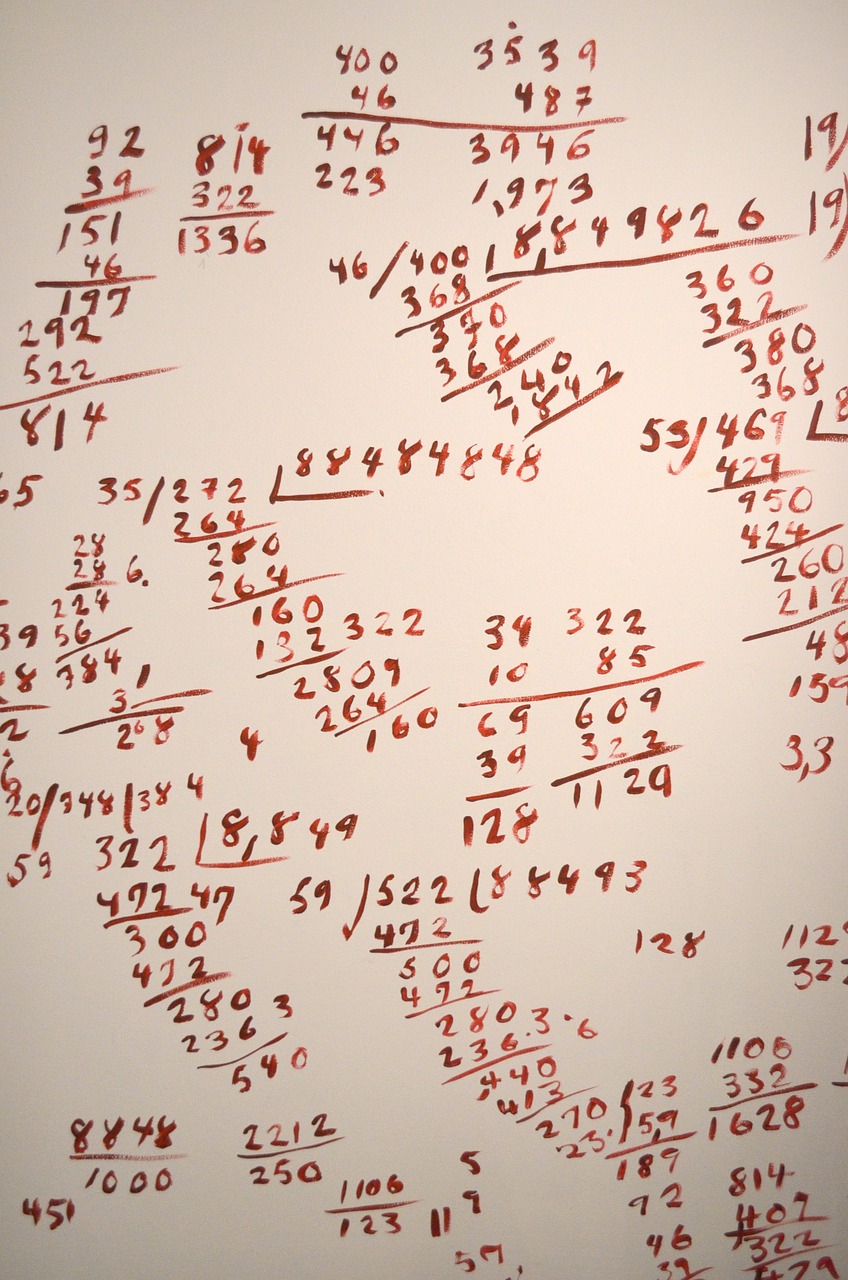 400 3539
46 487
446 3946
223 1,973
92
39
151
46
197
814
322
1336
19/
19)
292
522
814
46/400 18,849826
368
370
368
240
1,842
360
322
380
368
53/469
429
950
424
260
212
48
159
3,3
65
35/272 884 84848
264
280
264
160
132 322
2809
264
160
28
28 6.
224
56
784
1
3
268
4
39
18
2
6
39 322
10 85
69 609
39 322
128 1129
20/348/384
59
322 8,849
472 47
300
472
280 3
236 3
540
59/522 88493
472
500
472
280.3.6
236.3
440
413
270
23.
128
112
322
123
59
189
92
46
39
1106
332
1628
814
407
322
8848
1000
2212
250
451
1106
123
5
9
11
57,